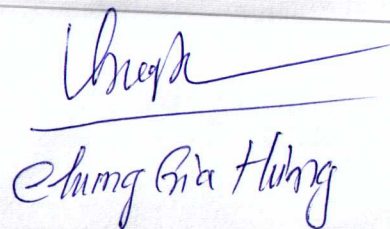 Chung Gia Hưng